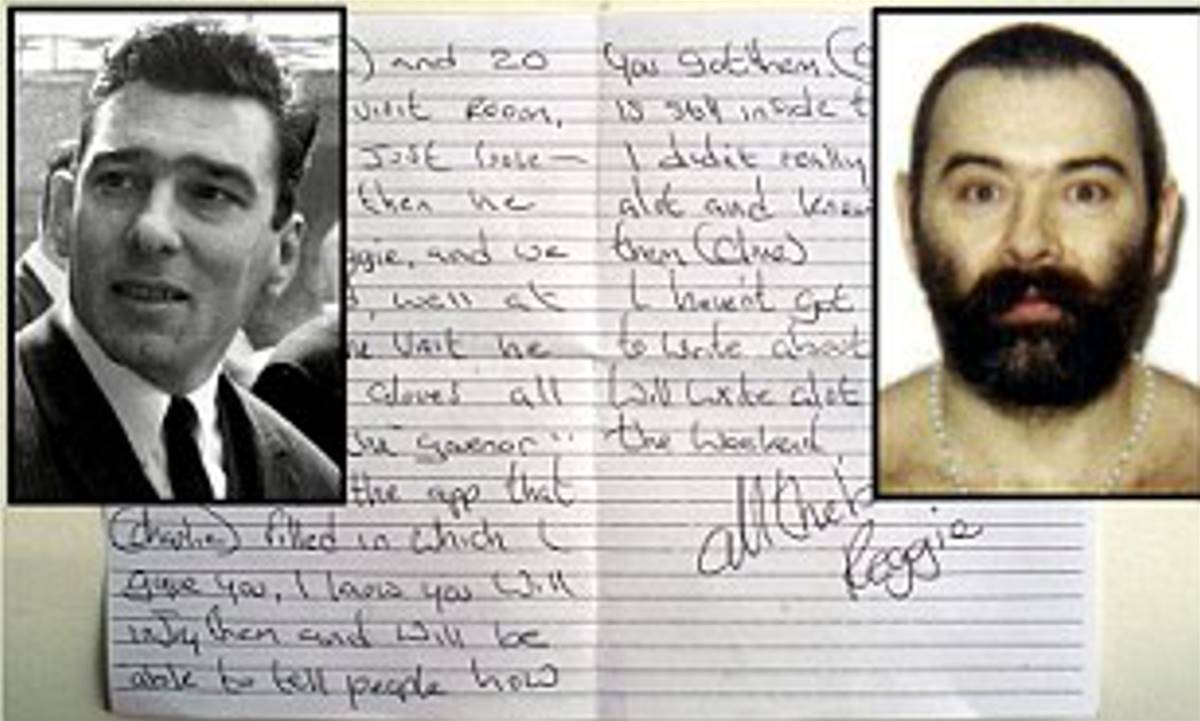 and 20
visit Room,
Just
then he
ggie, and we
well at
he visit he
Gloves all
the govenor"
the app that
(Charlie) filled in which I
gave you, I know you will
them and will be
able to tell people how
you got them.
is still inside
I did it really
alot and know
them
I haven't got
to write about
Will write alot
the Weekend
all
Reggie